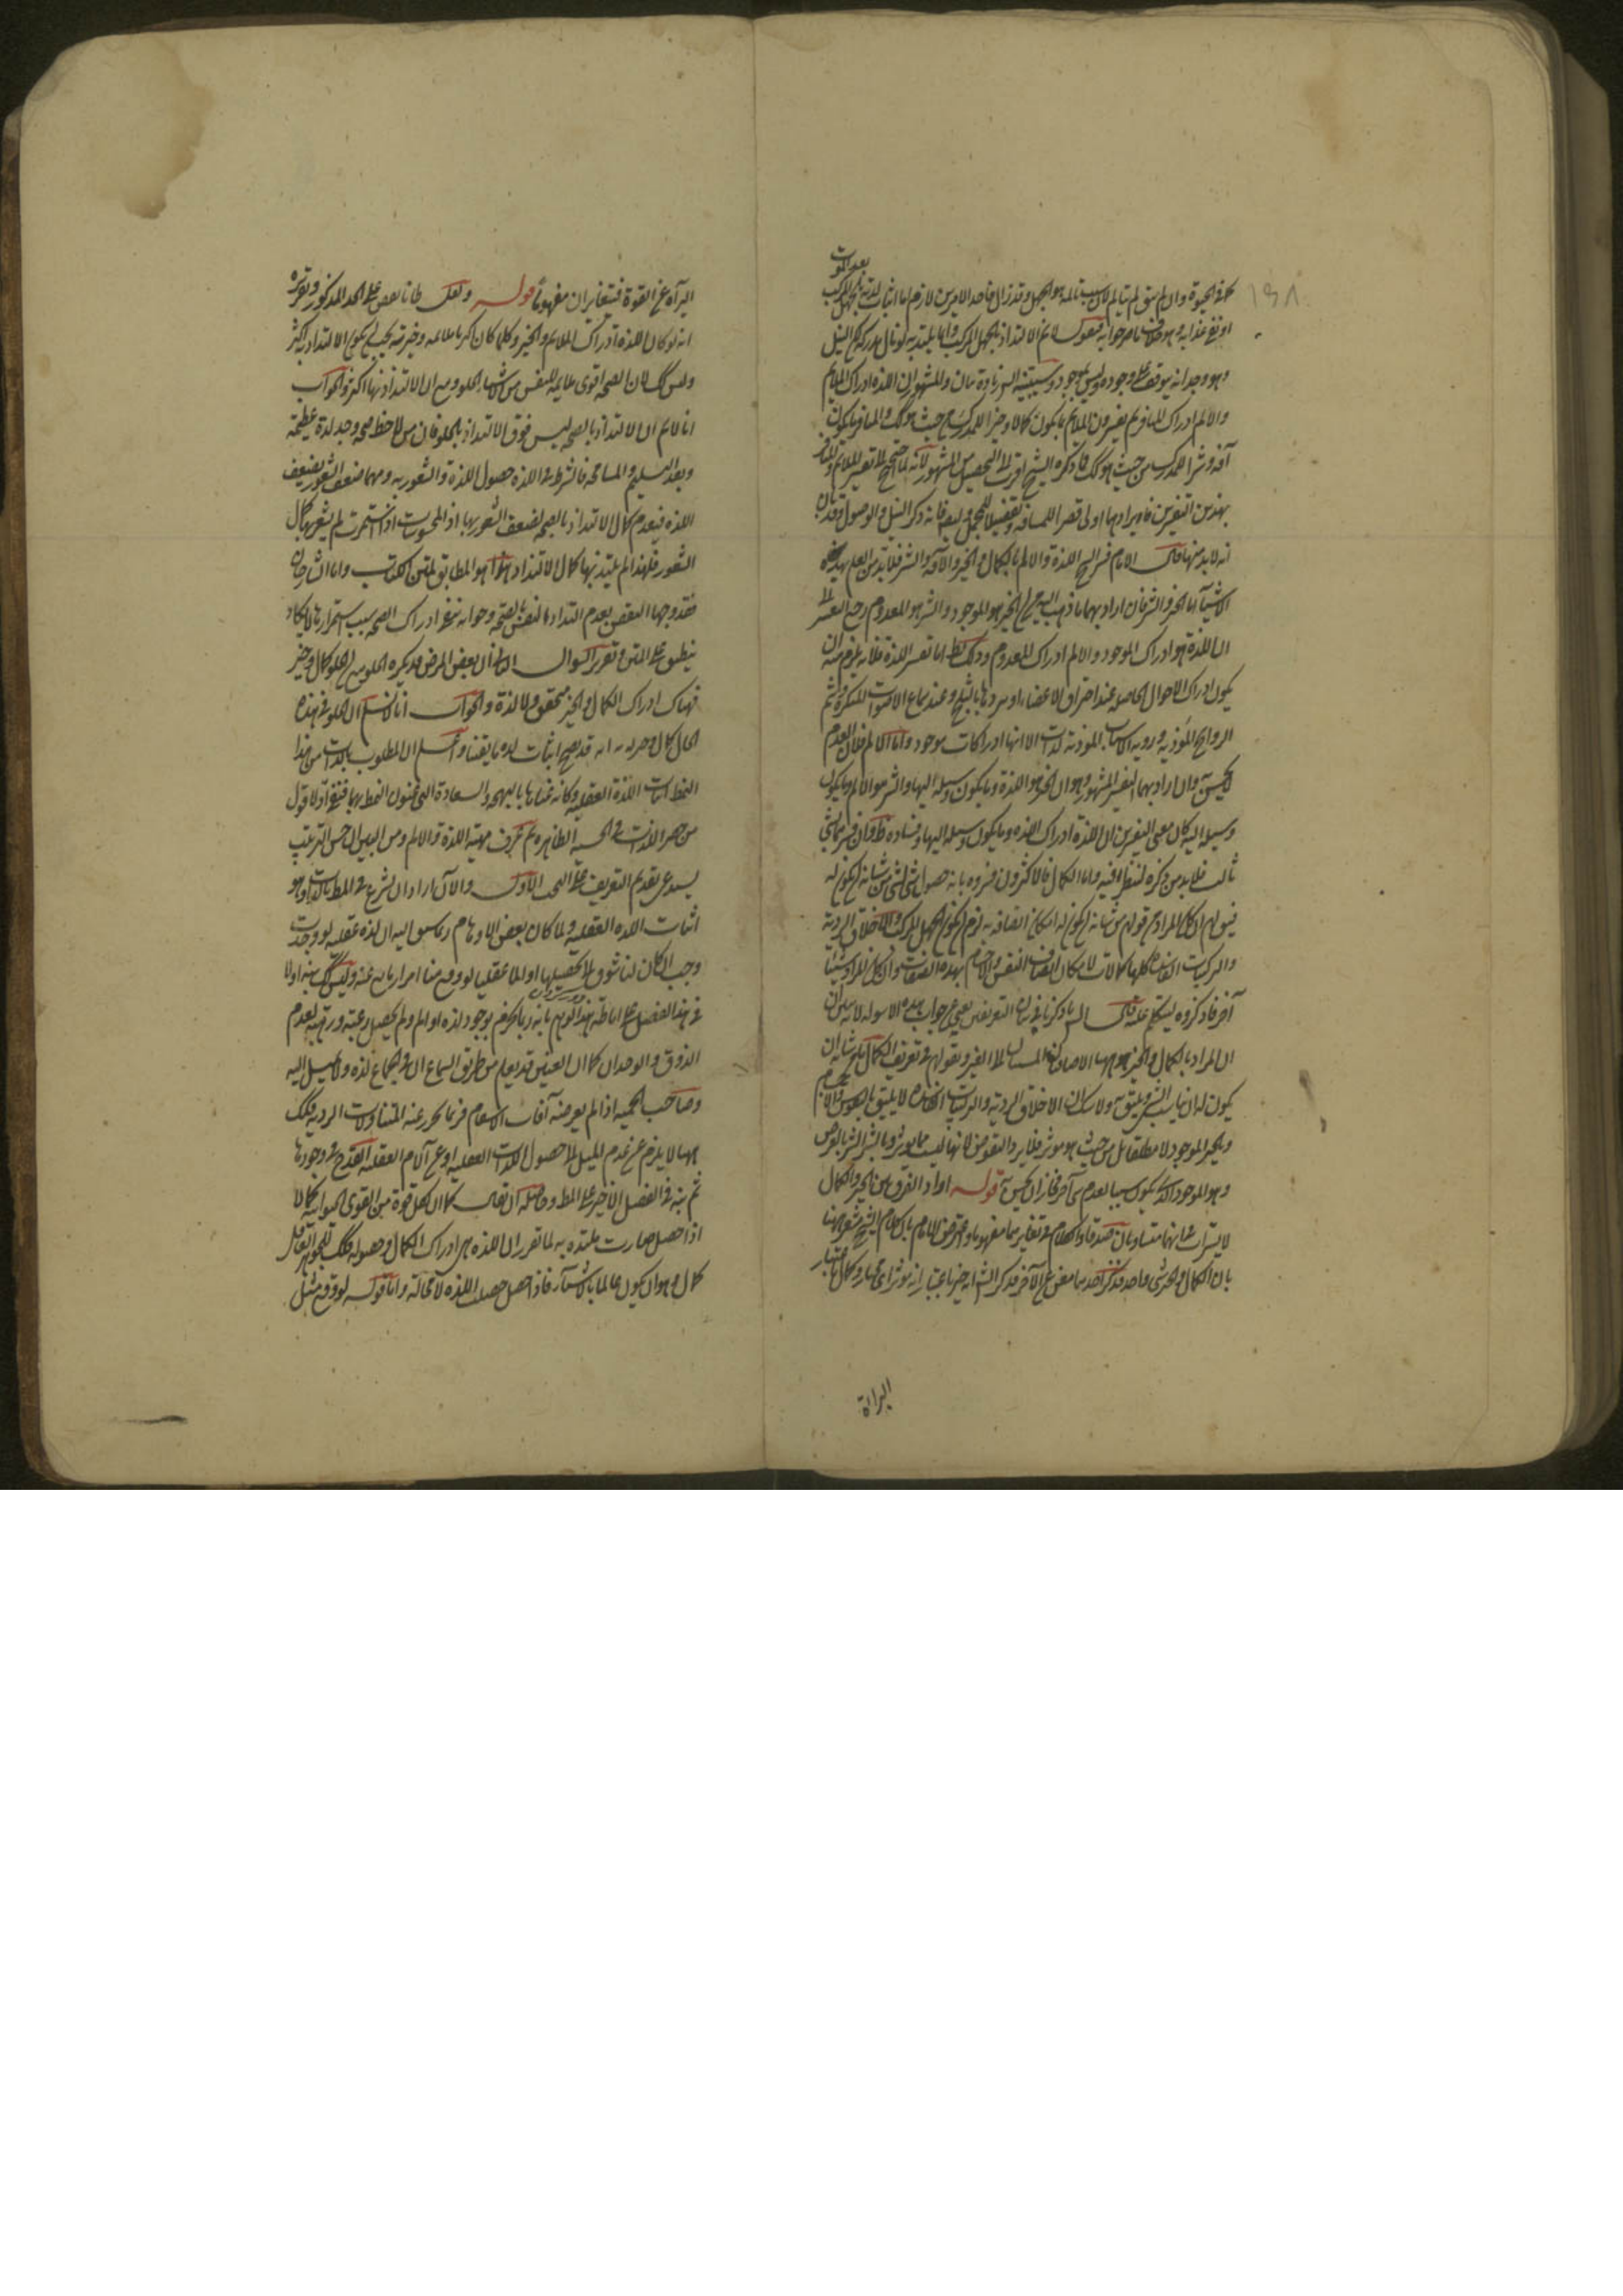 بعد الموت
كما في الحيوة وان لم يبق لم يتالم لان سبب تالمه هو الجهل وقد زال فاحد الامرين لازم اما اثبات لذته بالجهل المركب
او نفى عذابه وهو خلاف ما صرح به فنقول لانم الالتذاذ بالجهل المركب وانما يلتذ به لو نال مدركه لكن النيل
وهو وجدانه يتوقف على وجوده وليس بموجود وسيتبينه الشرح زيادة بيان والمشهور ان اللذة ادراك الملايم
والالم ادراك المنافر ثم يفسرون الملايم بما يكون كمالا وخيرا للمدرك من حيث هو كك والمنافر بما يكون
آفة وشرا للمدرك من حيث هو كك فما ذكره الشيخ اقرب الى التحصيل من المشهور لانه لما احتيج الى تفسير الملايم والمنافر
بهذين التفسيرين فايرادهما اولى قصرا للمسافة وتفصيلا للمجمل وايضا فانه ذكر النيل والوصول وقد بان
انه لابد منهما قال الامام فسر الشيخ اللذة والالم بالكمال والخير والآفة والشر فلابد من العلم بهذه
الاشيآ اما الخير والشر فان اراد بهما ما ذهب اليه من ان الخير هو الموجود والشر هو المعدوم رجع التفسير الى
ان اللذة هو ادراك الموجود والالم ادراك المعدوم وذلك بط اما تفسير اللذة فلانه يلزم منه ان
يكون ادراك الاحوال الحاصلة عند احتراق الاعضاء او بردها بالثلج وعند سماع الاصوات المنكرة وشم
الروايح المؤذية ورؤية الاسباب الموذية لذات لانها ادراكات موجود واما الالم فلان العدم
لا يحس به وان اراد بهما التفسير المشهور وهو ان الخير هو اللذة وما يكون وسيلة اليها والشر هو الالم وما يكون
وسيلة اليه كان معنى التفسيرين ان اللذة ادراك اللذة وما يكون وسيلة اليها وفساده ظ وان فسر بشئ
ثالث فلابد من ذكره لننظر فيه واما الكمال فالاكثرون فسروه بانه حصول شئ لشئ من شانه ان يكون له
فيقول ان كان المراد من قولهم من شانه ان يكون له امكان اتصافه به لزم ان يكون الجهل المركب والاخلاق الردية
والتركيبات الفاسدة كلها كمالات لامكان اتصاف النفس والاجسام بهذه الصفات وان كان المراد شيئا
آخر فاذكروه لنتكلم عليه قال الش ما ذكرنا في بيان التعريفين يغنى عن جواب هذه الاسولة لانه بين ان
ان المراد بالكمال والخير ههنا الاضافيان المنسوبان الى الغير وبقولهم في تعريف الكمال ما من شانه ان
يكون له ان يناسب الشئ ويليق به ولا شك ان الاخلاق الردية والتركيبات الفاسدة لا يليق بالنفوس والاجسام
والخير الموجود لا مطلقا بل من حيث هو موثر فلا يرد النقوض لانها ليست مما يوثر وبالشر الشر بالعرض
وهو الموجود الذي يكون سببا لعدم شئ آخر فجاز ان يحس به قوله اراد الفرق بين الخير والكمال
لا يستراب في انهما متساويان صدقا والكلام في تغايرهما مفهوما واعترض الامام بان كلام الشيخ مشعر ههنا
بان الكمال والخير شئ واحد فذكر احدهما مغن عن الآخر فذكر الش انه خير باعتبار انه موثر اى مختار وكمال باعتبار
البرآة
البرآة عن القوة فيتغايران مفهوما قوله ولعل ظانا نقض على الحد المذكور وتقريره
انه لو كان اللذة ادراك الملايم والخير وكلما كان اكثر ملايمة وخيرية يجب ان يكون الالتذاذ به اكثر
وليس كك لان الصحة اقوى ملايمة للنفس من الاشياء الحلوة مع ان الالتذاذ منها اكثر والجواب
انا لانم ان الالتذاذ بالصحة ليس فوق الالتذاذ بالحلو فان من لاحظ صحة وجد لذة عظيمة
وبعد التسليم والمسامحة فالشرط في اللذة حصول اللذة والشعور به ومهما ضعف الشعور يضعف
اللذة فينعدم كمال الالتذاذ بالصحة لضعف الشعور بها اذ المحسوسات اذا استمرت لم يشعر بها كمال
الشعور فلهذا لم يلتذ بها كمال الالتذاذ هذا هو المطابق لمتن الكتاب واما الشارحان
فقد وجها النقض بعدم التذاذ النفس بالصحة وجوابه بمنع ادراك الصحة بسبب استمرارها لا يكاد
ينطبق على المتن وتقرير السوال الثاني ان بعض المرضى قد يكره الحلو مع ان الحلو كمال وخير
فهناك ادراك الكمال والخير متحقق ولا لذة والجواب انا لا نسلم ان الحلو في هذه
الحال كمال وخير له انه قد يصح اثبات لذة ما يقينا واعلم ان المطلوب بالذات من هذا
النمط اثبات اللذة العقلية وكانه عناها بالبهجة والسعادة التي عنون النمط بهما فنبه اولا قول
من حصر اللذات في الحسية الظاهرة ثم عرف مهية اللذة والالم ومن البين ان حسن الترتيب
يستدعى تقديم التعريف على البحث الاول والآن اراد ان يشرع في المط بالذات وهو
اثبات اللذة العقلية ولما كان بعض الاوهام ربما سبق اليه ان لذة عقلية لو وجدت
وجب ان كان لنا شوق الى تحصيلها او الما عقليا لو وقع منا احترازنا عنه وليس كك نبه اولا
في هذا الفصل على اماطة هذا الوهم بانه ربما يجزم بوجود لذة او الم ولم يحصل رغبة ورهبة لعدم
الذوق والوجدان كما ان العنين قد يعلم من طريق السماع ان في الجماع لذة ولا يميل اليه
وصاحب الحمية اذا لم يعرضه آفات الاسقام فربما لا يحترز عنه المتناولات الردية فكك
ههنا لا يلزم من عدم الميل الى حصول اللذات العقلية او عن آلام العقلية القدح في وجودها
ثم نبه في الفصل الاخير على المط وحاصله ان يقال كما ان لكل قوة من القوى الحيوانية كمالا
اذا حصل صارت ملتذة به لما تقرر ان اللذة هي ادراك الكمال وحصوله فكك للجوهر العاقل
كمال وهو ان يكون عالما بالاشيآء فاذا حصل حصلت اللذة لا محالة واما قوله لو وقع مثل